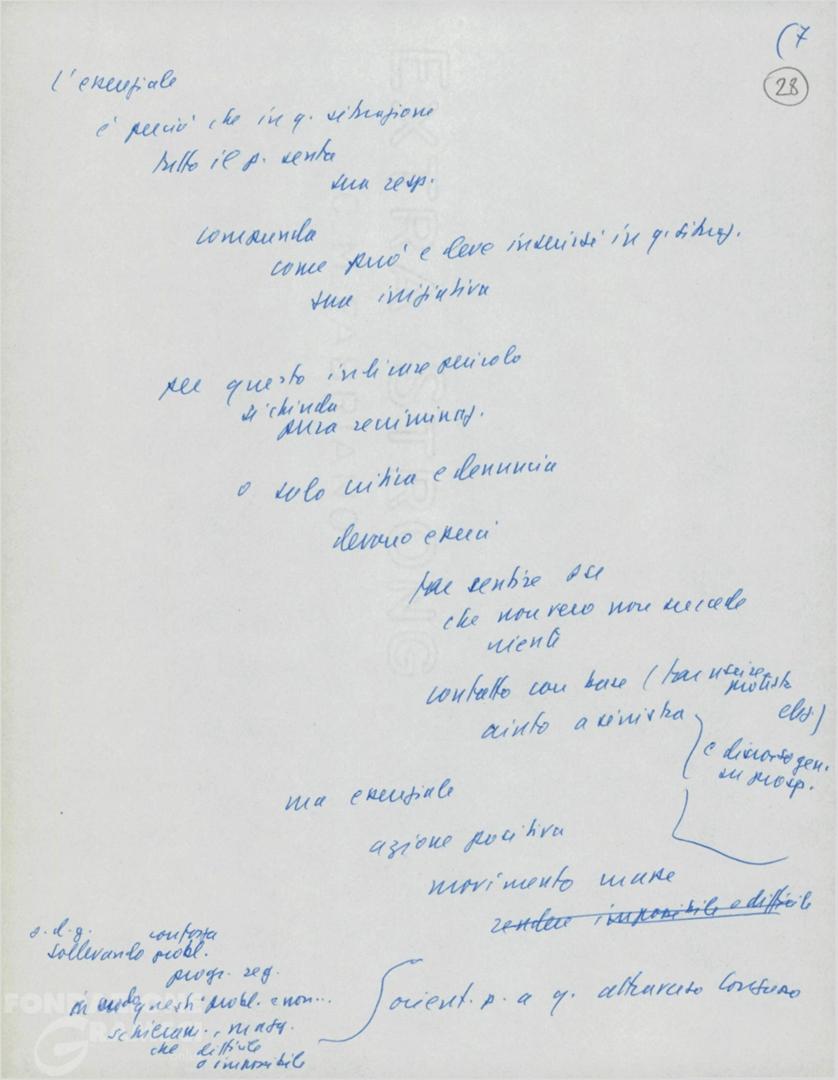 (7
28
l'essenziale
è perciò che in q. situazione
tutto il p. senta
sua resp.
comprenda
come può e deve inserirsi in q. situaz.
sua iniziativa
per questo indicare pericolo
si chiuda
pura recriminaz.
o solo critica e denuncia
devono esserci
far sentire PSI
che non vero non succede
niente
contatto con base (far uscire
protesta
aiuto a sinistra
e discorso gen.
su prosp.
ma essenziale
azione positiva
movimento masse
rendere impossibile o difficile
o.d.g.
sollevando probl.
progr. reg.
questi probl. e non...
schieram.
che difficile
o impossibile
orient. p. a q. attraverso Congresso
FONDAZIONE
GRAMSCI
EXTRA STRONG